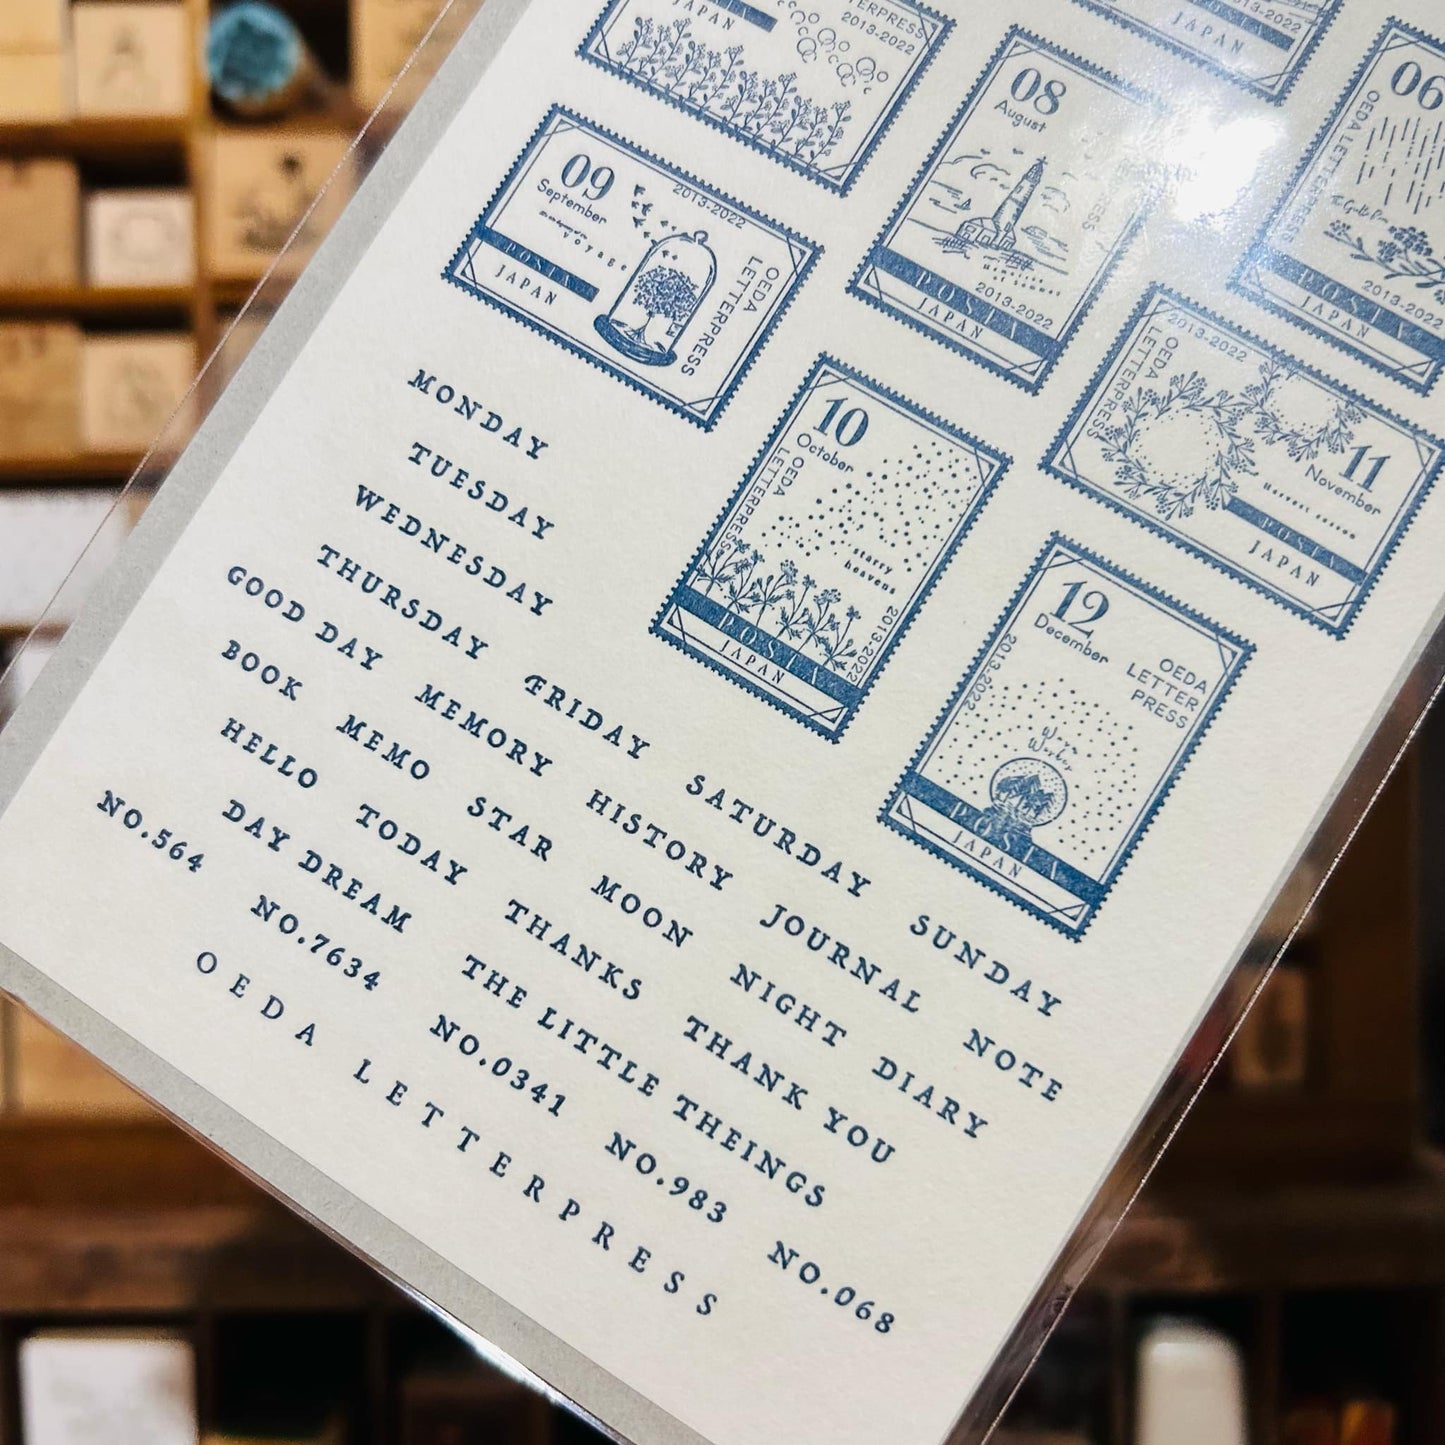 JAPAN
TERPRESS
2013-2022
JAPAN
2013-2022
08
August
PRESS
Memories
of summer
POSTA
2013-2022
JAPAN
06
OEDA LETTERPRESS
POSTA
2013-2022
JAPAN
09
September
voyage
2013-2022
POSTA
JAPAN
OEDA
LETTERPRESS
10
October
OEDA
LETTERPRESS
starry
heavens
2013-2022
POSTA
JAPAN
2013-2022
OEDA
LETTERPRESS
11
November
Harvest season
POSTA
JAPAN
12
December
2013-2022
OEDA
LETTER
PRESS
POSTA
JAPAN
MONDAY
TUESDAY
WEDNESDAY
THURSDAY FRIDAY SATURDAY SUNDAY
GOOD DAY MEMORY HISTORY JOURNAL NOTE
BOOK MEMO STAR MOON NIGHT DIARY
HELLO TODAY THANKS THANK YOU
DAY DREAM THE LITTLE THEINGS
NO.564 NO.7634 NO.0341 NO.983 NO.068
OEDA LETTERPRESS